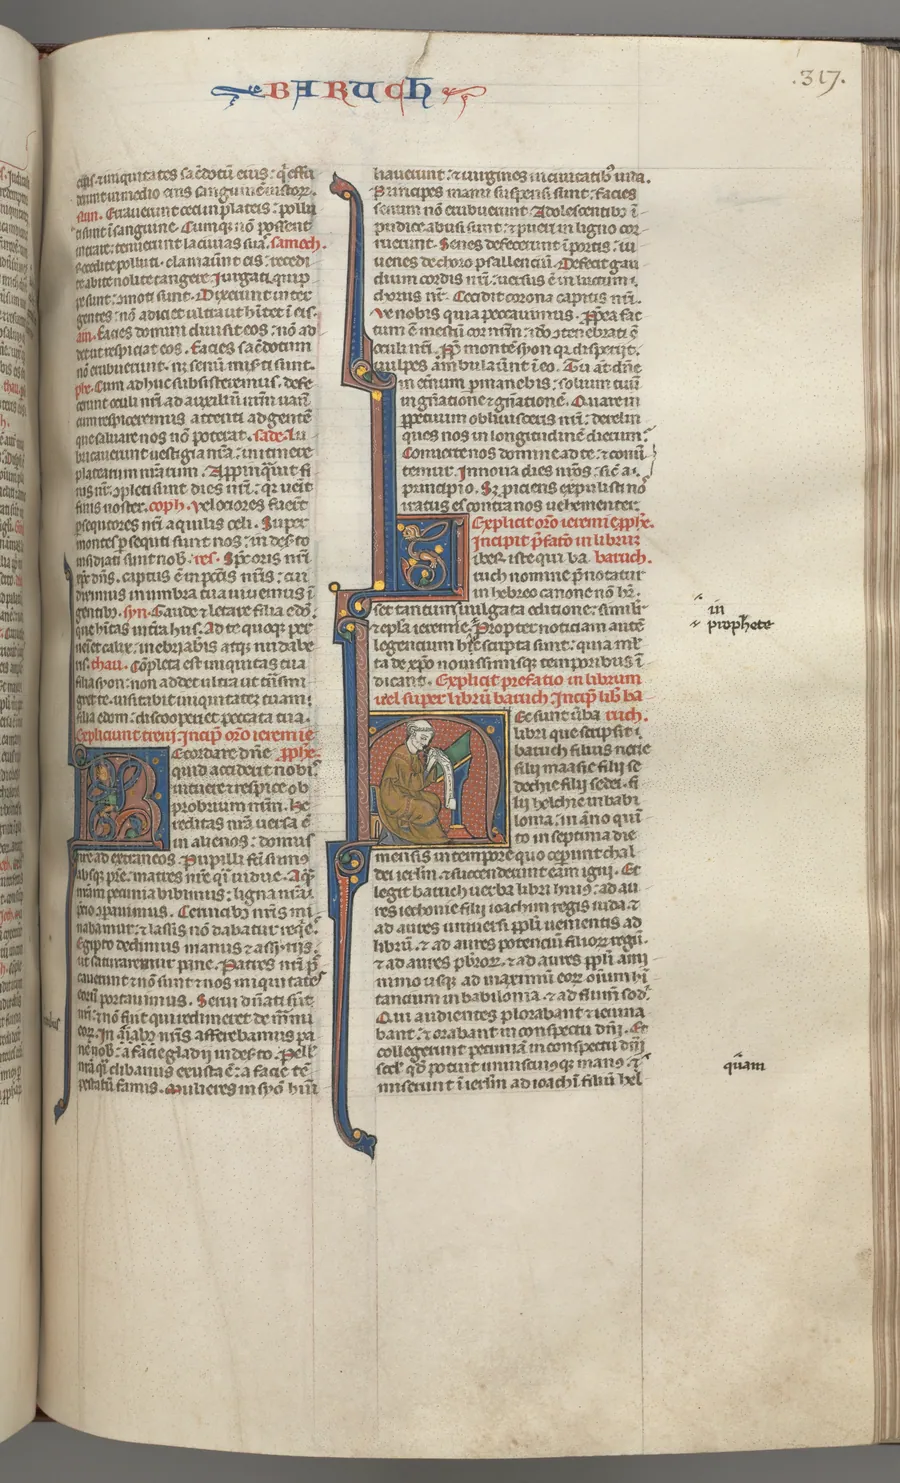 BARUCH
.317.
eius · ⁊ iniquitates sac̄dotū eius : q̇ effu
derunt in medio eius sanguinē iustor̄.
sun. Errauerunt ceci in plateis : pollu
ti sunt ī sanguine · Cumq; nō possent
tenuerunt lacinias suas̄. samech.
Recedite polluti · clamauīt eis : recedi
te abite nolite tangere · Iurgati quip
pe sunt : ⁊ moti sunt · Dixerunt inter
gentes : nō adiciet ultra ut hītet ī eis.
ain. Facies domini diuisit eos : nō ad
det ut respiciat eos. Facies sac̄dotum
nō erubuerunt · nec senū misti sunt.
phe. Cum adhuc subsisteremus · defe
cerunt oculi nr̄i ad auxiliū nr̄m uanū
cum respiceremus attenti ad gentē
que saluare nos nō poterat · sade. Lu
bricauerunt uestigia nr̄a : in itinere
platearum nr̄arum · Appinq̄uit fi
nis nr̄ : ⁊pleti sunt dies nr̄i : qr̄ uenit
finis noster. coph. Velociores fuer̄t
p̄secutores nr̄i aquilis celi. Super
montes p̄secuti sunt nos : in des̄to
insidiati sunt nob̄. res. Sp̄c oris nr̄i
xp̄c dn̄s. captus ē in pc̄cis nr̄is : cui
diximus in umbra tua uiuemus ī
gentib; . syn. Gaude ⁊ letare filia edō.
que hītas in tr̄a hus. Ad te quoq; per
ueniet calix : inebriab̄is atq; nudabe
ris. thau. Cōpleta est iniquitas tua
filia syon : non addet ultra ut trāsmi
gret te. uisitabit iniquitatem tuam
filia edom : discooperiet peccata tua.
Expliciunt treni. Incipit orō ieremie
Recordare dn̄e pph̄e.
quid acciderit nobis
intuere ⁊ respice ob
probrium nr̄m. He
reditas nr̄a uersa ē
in alienos : domus
nr̄e ad extraneos. Pupilli fc̄i sum;
absq; pr̄e. matres nr̄e q̄i uidue. Aq̄
nr̄am pecunia bibimus : ligna nr̄a
p̄cio ⁊parauimus. Ceruicib; nr̄is mi
nabamur : ⁊ lassis nō dabatur req̄e.
Egipto dedimus manus ⁊ assiriis.
ut saturaremur pane. Patres nr̄i p̄
cauerunt ⁊ nō sunt ⁊ nos iniquitates
eorū portauimus. Serui dn̄ati sūt
nr̄i : nō fuit qui redimeret de manu
eor̄. In aīab; nr̄is afferebamus pa
nē nob̄. a facie gladij in des̄to. Pell
nr̄a q̄i clibanus exusta ē : a facie tē
pestatū famis. Mulieres in syō hūi
liauerunt : ⁊ uirgines in ciuitatib; iuda.
Principes manu suspensi sunt : facies
senum nō erubuerunt. Adolescentib; ī
pudice abusi sunt : ⁊ pueri in ligno cor
ruerunt. Senes defecerunt ī portis : iu
uenes de choro psallenciū. Defecit gau
dium cordis nr̄i : uersus ē in luctum
chorus nr̄. Cecidit corona capitis nr̄i.
ve nobis quia peccauimus. Ppea fac
tum ē mestū cor nr̄m : ido ⁊tenebrati s̄
oculi nr̄i. Pp̄ montē syon qr̄ disperiit.
uulpes ambulauer̄t ī eo. Tu aūt dn̄e
in etnūm p̄manebis : solium tuū
in gn̄atione ⁊ gn̄ationē. Quare in
p̄petuum obliuisceris nr̄i : derelin
ques nos in longitudinē dierum
Conuerte nos domine ad te. ⁊ conu̅
temur. Innoua dies nr̄os : sic̄ a
principio. Sz̄ piciens expulisti nō
iratus es contra nos uehementer.
Explicit orō ieremie pph̄e.
Incipit p̄fatō in librum
Liber iste qui ba baruch.
ruch nomine p̄notatur
in hebreo canone nō hr̄.
set tantum in uulgata editione : simili
⁊ ep̄la ieremie. Propter noticiam autē
legentium hic scripta sunt : quia ml̄
ta de xp̄o nouissimisq; temporibus ī
dicant. Explicit prefatio in librum
uel super librū baruch. Incip̄ lib̄ ba
Et sunt ūba ruch.
libri que scripsit
baruch filius nerie
filii maasie filii se
dechie filii sedei. fi
lii helchie in babi
lonia. in āno quī
to in septima die
mensis in tempore quo ceperunt chal
dei ier̄lm ⁊ succenderunt eam igni. Et
legit baruch uerba libri huius : ad au
res iechonie filii ioachim regis iuda. ⁊
ad aures uniuersi ppl̄i uenientis ad
librū. ⁊ ad aures potenciū filior̄ regū.
⁊ ad aures pb̄ror̄. ⁊ ad aures ppl̄i a mi
nimo usq; ad maximū eor̄ oīum hī
tancium in babilonia. ⁊ ad flum̄ sodi.
Qui audientes plorabant ⁊ ieiuna
bant. ⁊ orabant in conspectu dn̄i. Et
collegerunt pecuniā in conspectu dn̄i
sc̄dm qd̄ potuit uniuscuiusq; manus. ⁊
miserunt ī ier̄lm ad ioachī filiū hel
in
prophete
quam